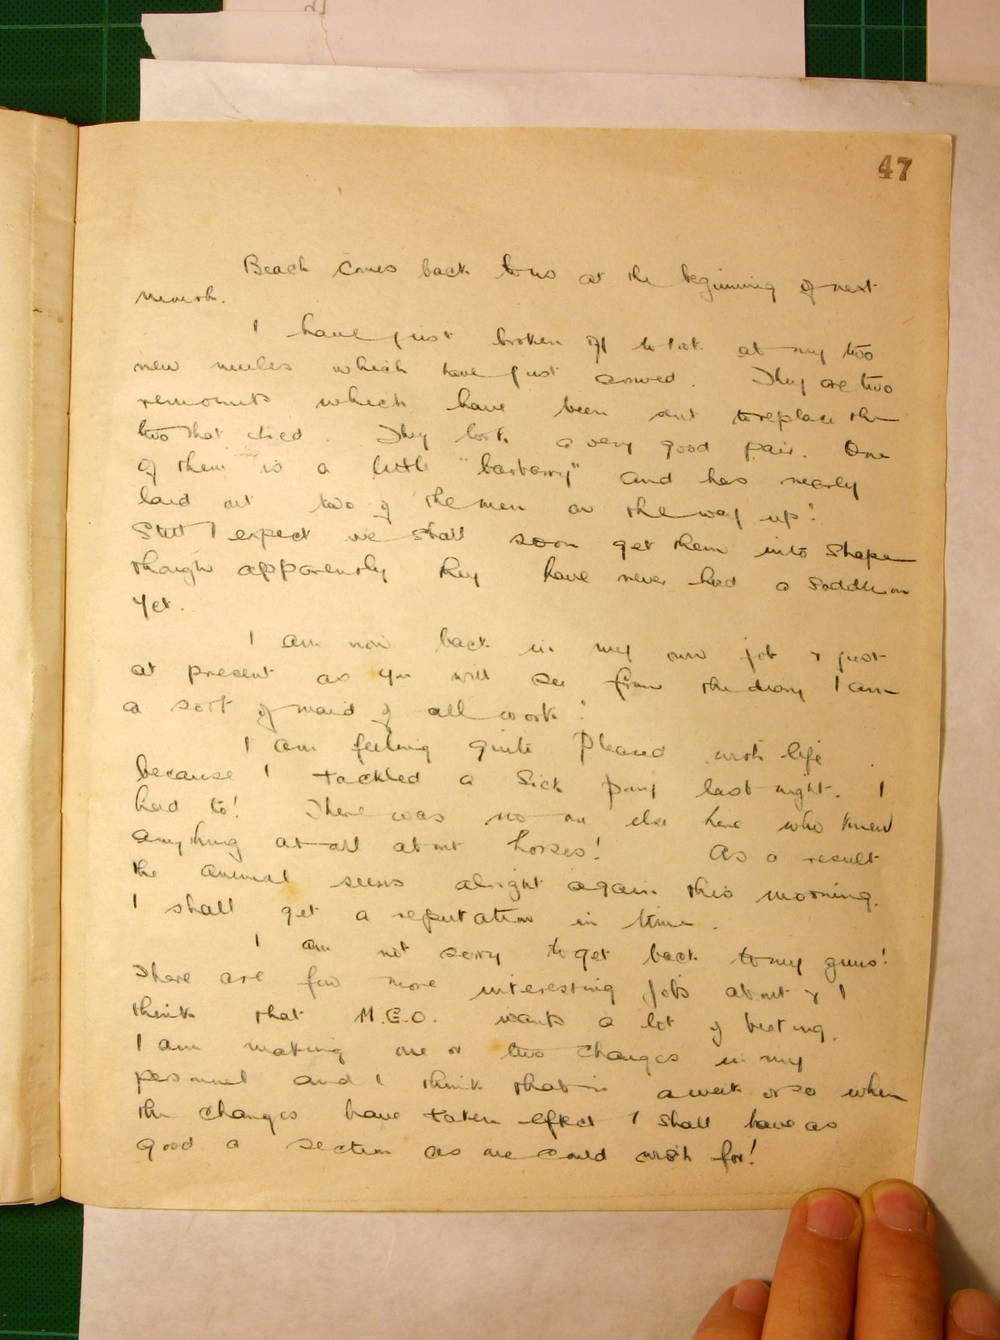 47
Beach comes back to us at the beginning of next
month.
I have just broken off to look at my two
new mules which have just arrived. They are two
remounts which have been sent to replace the
two that died. They look a very good pair. One
of them is a little "barbarry" and has nearly
laid out two of the men on the way up!
Still I expect we shall soon get them into shape
though apparently they have never had a saddle on
yet.
I am now back in my own job & just
at present as you will see from the diary I am
a sort of maid of all work!
I am feeling quite pleased with life
because I tackled a sick pony last night. I
had to! There was no one else here who knew
anything at all about horses! As a result
the animal seems alright again this morning.
I shall get a reputation in time.
I am not sorry to get back to my guns!
There are few more interesting jobs about & I
think that M.G.O. wants a lot of beating.
I am making one or two changes in my
personnel and I think that in a week or so when
the changes have taken effect I shall have as
good a section as one could wish for!